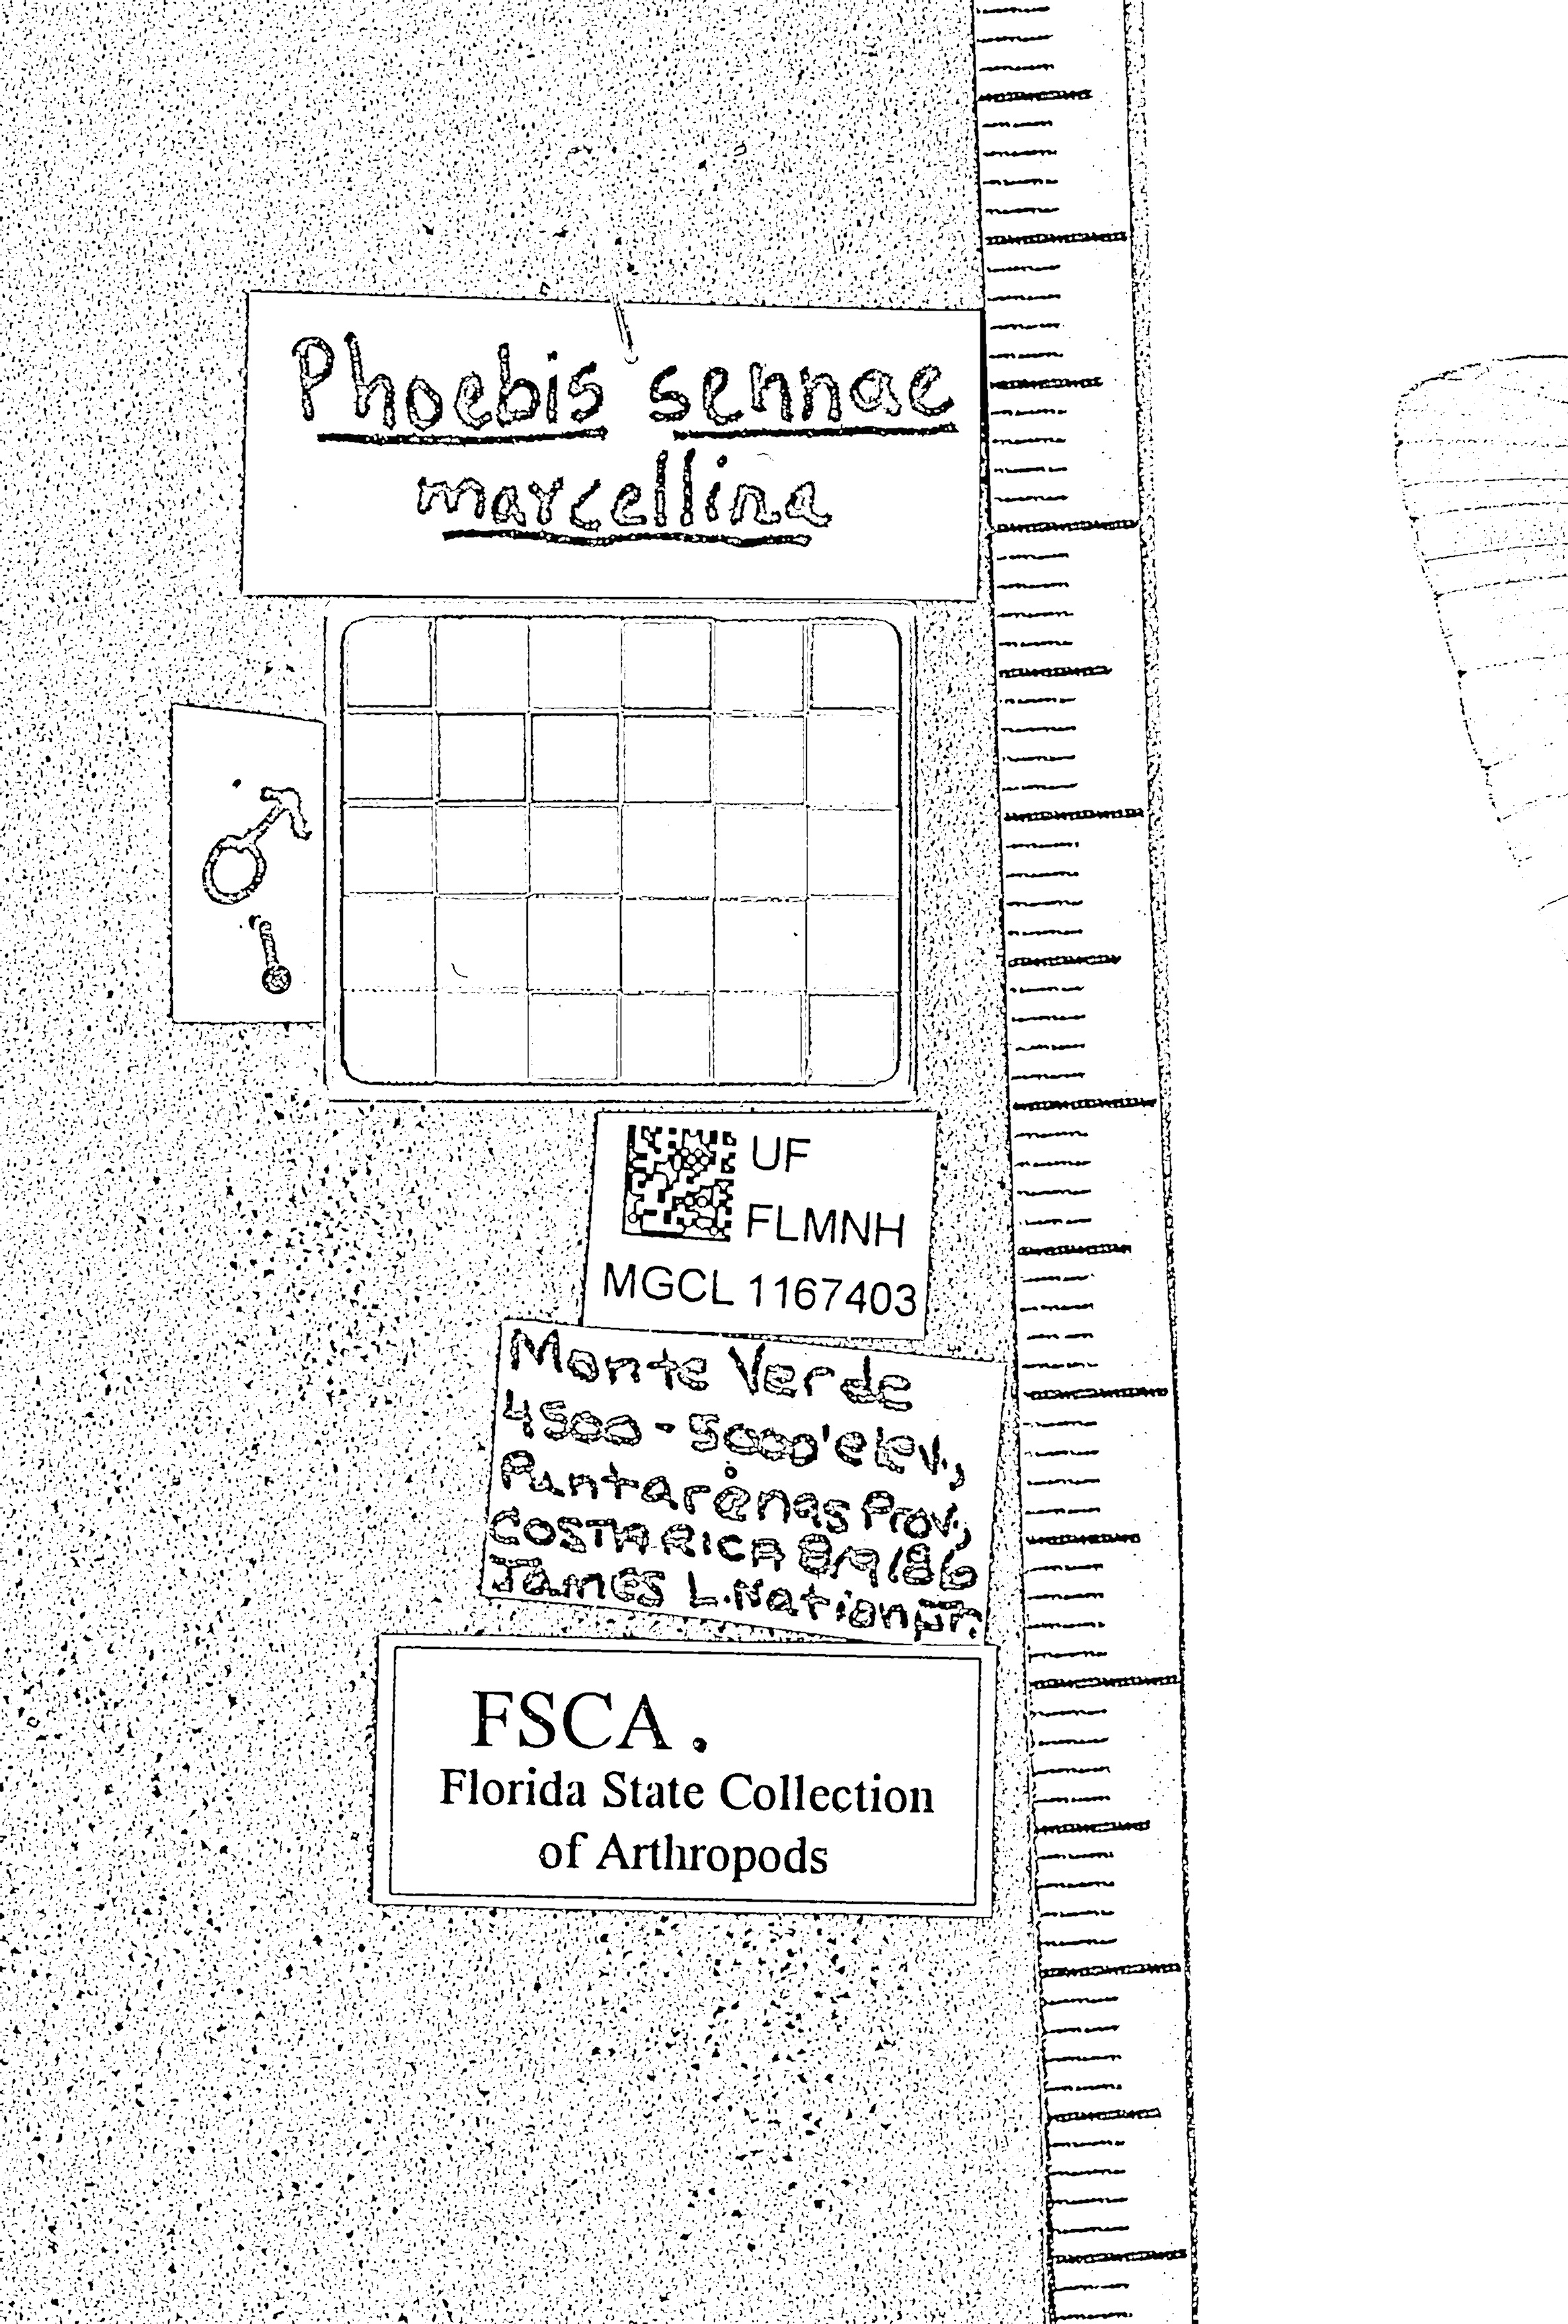 Phoebis sennae
marcellina
♂
UF
FLMNH
MGCL 1167403
Monte Verde
4500-5000'elev.,
Puntarenas Prov.,
COSTA RICA 8/9/86
James L. Nation Jr.
FSCA.
Florida State Collection
of Arthropods